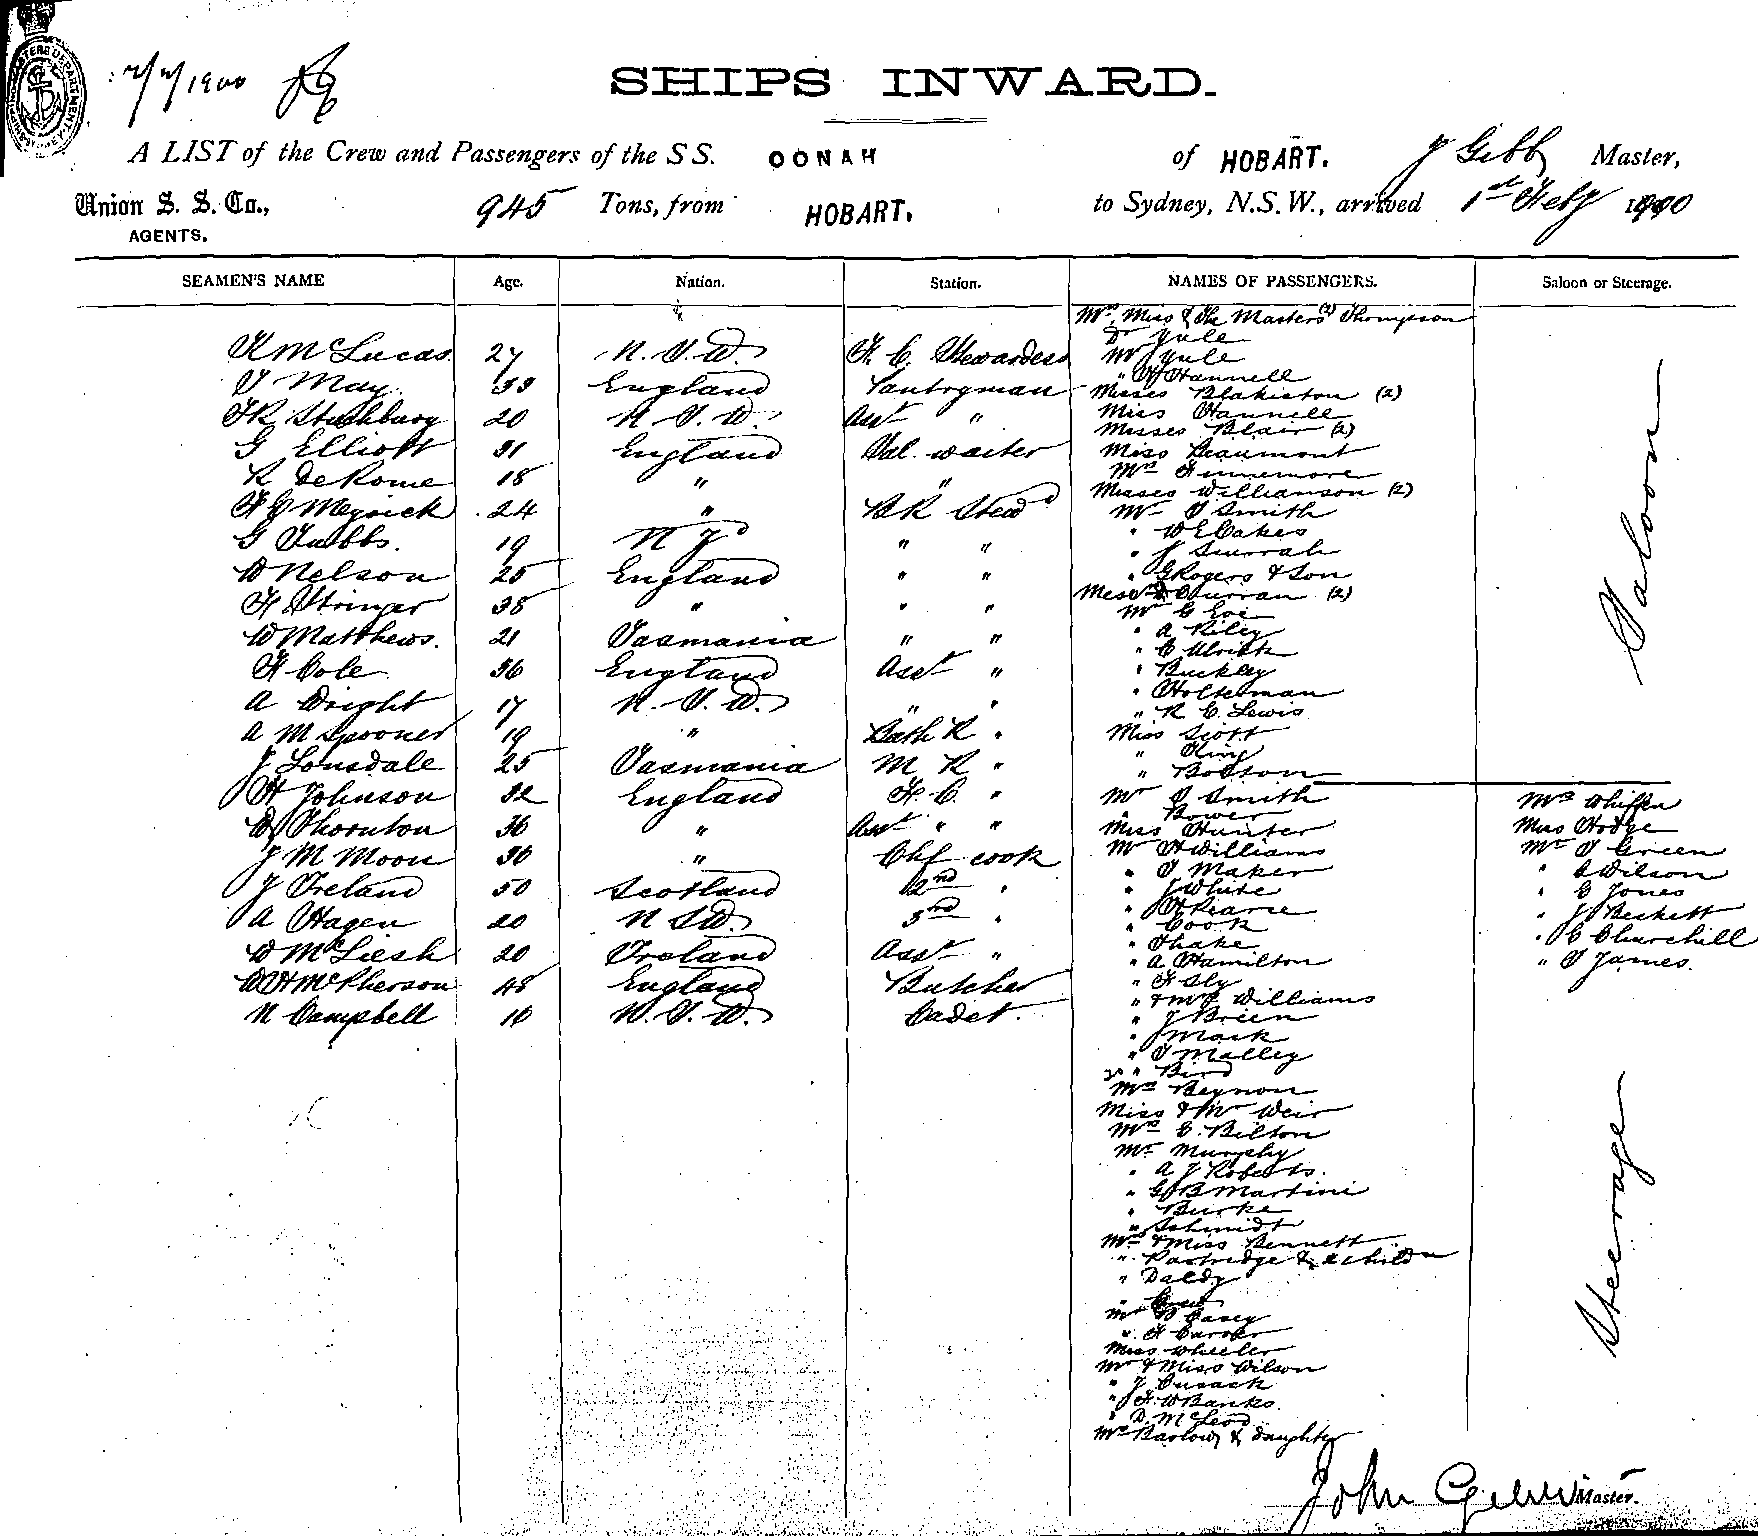 2/2/1900
SHIPS INWARD.
A LIST of the Crew and Passengers of the SS. OONAH of HOBART. J Gibb Master,
Union S. S. Co., AGENTS. 945 Tons, from HOBART. to Sydney, N.S.W., arrived 1st Feby 1900
SEAMEN'S NAME Age. Nation. Station. NAMES OF PASSENGERS. Saloon or Steerage.
K McLucas 27 N. S. W. F. C. Stewardess
T May 33 England Pantryman
20 N. S. W. Asst "
G Elliott 31 England Sal. waiter
R DeRome 18 " "
Meyrick 24 " BR Stewd
G Tubbs. 19 N Zd " "
W Nelson 25 England " "
H Stringer 38 " " "
W Matthews. 21 Tasmania " "
F Cole 36 England Asst "
A Wright 17 N. S. W. " "
A M Spooner 19 " Bath R "
J Lonsdale 25 Tasmania M R "
H Johnson 32 England F. C. "
W Thornton 36 " Asst " "
J M Moon 36 " Chf cook
J Ireland 50 Scotland 2nd "
A Hagen 20 N SW. 3rd "
W McLiesh 20 Ireland Asst "
W H McPherson 48 England Butcher
N Campbell 16 N. S. W. Cadet
Mrs, Miss & The Masters (2) Thompson
Dr Yule
Mr Yule
" Hannell
Misses Blakiston (2)
Miss Hannell
Misses Blair (2)
Miss Beaumont
Mrs Finnemore
Misses Williamson (2)
Mr T Smith
" W E Oakes
" J Scurrah
" G Rogers & Son
Curran (2)
Mr G
" A Riley
" C Ulrich
" Buckley
" Holtzman
" R C Lewis
Miss Scott
" King
" Bolton
Saloon
Mr T Smith
" Bower
Miss Hunter
Mr H Williams
" T Maker
" J White
" H Pearce
" Cook
" Thake
" A Hamilton
" F Sly
" & Mrs Williams
" J Breen
" J Mack
" T Malley
" Bird
Mrs Beynon
Miss & Mr Weir
Mrs C. Bilton
Mr Murphy
" A J Roberts.
" G B Martini
" Burke
" Schmidt
Mrs & Miss Bennett
" Partridge & childn
" Daldy
"
Mr Casey
" F Carver
Miss Wheeler
Mr & Miss Wilson
" J Cusack
" F. W Banks.
" D. McLeod
Mrs Barlow & daughter
Mrs Whiffen
Miss Hodge
Mr T Green
" A Wilson
" G Jones
" J Beckett
" C Churchill
" T James.
Steerage
John Master.